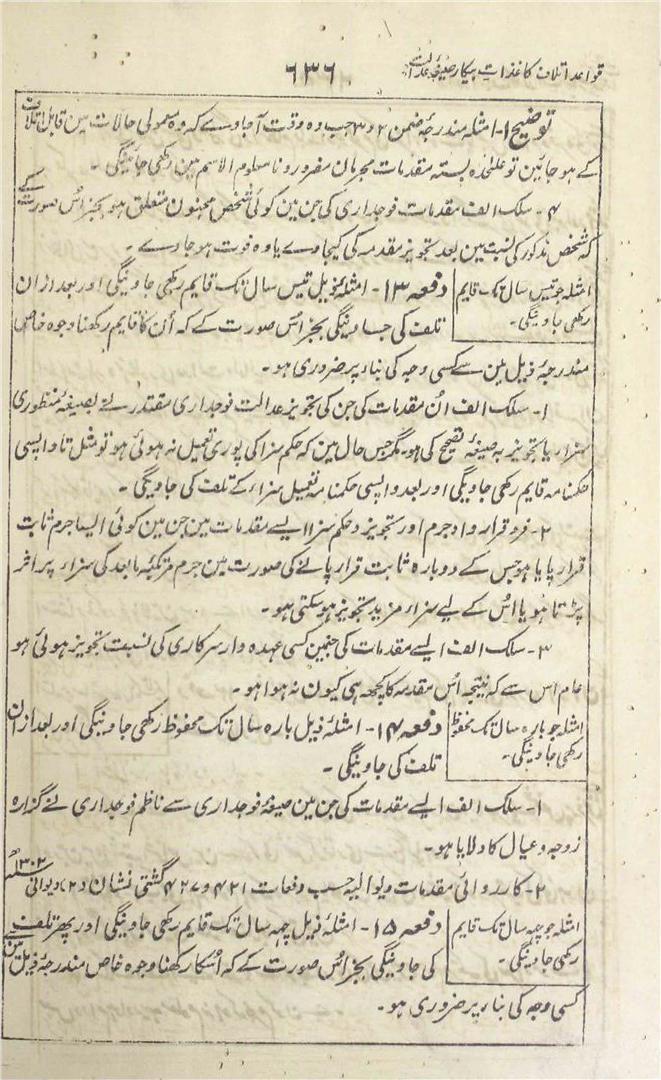 قواعد اتلاف کاغذات بیکار صیغہ عدالت
۶۳۶
توضیح ۱- امثلہ مندرجۂ ضمن ۲ و ۳ جب وہ وقت آجاوے کہ وہ معمولی حالات مین قابل اتلاف
کے ہوجائین تو علٰحدہ بستہ مقدمات مجرمان مفرور و نامعلوم الاسم مین رکھی جائینگی ۔
۴- سلک الف مقدمات فوجداری کی جن مین کوئی شخص مجنون متعلق ہو بجز اُس صورت کے
کہ شخص مذکور کی نسبت مین بعد تجویز مقدمہ کی کیجاوے یا وہ فوت ہوجاوے ۔
امثلہ جو تیس سال تک قایم
رکھی جاوینگی ۔
دفعہ ۱۳- امثلۂ ذیل تیس سال تک قایم رکھی جاوینگی اور بعد ازان
تلف کی جاوینگی بجز اُس صورت کے کہ اُن کا قایم رکھنا وجوہ خاص
مندرجۂ ذیل مین سے کسی وجہ کی بناء پر ضروری ہو ۔
۱- سلک الف اُن مقدمات کی جن کی تجویز عدالت فوجداری مقتدر نے بصیغۂ منظوری
سزا یا تجویز بہ صیغۂ تصحیح کی ہو۔ مگر جس حال مین کہ حکم سزا کی پوری تعمیل نہ ہوئی ہو تو مثل تا واپسی
حکمنامہ قایم رکھی جاویگی اور بعد واپسی حکمنامہ تعمیل سزاء کے تلف کی جاویگی ۔
۲- فرد قرارداد جرم اور تجویز و حکم سزا ایسے مقدمات مین جن مین کوئی ایسا جرم ثابت
قرار پایا ہو جس کے دوبارہ ثابت قرار پانے کی صورت مین جرم مرتکبۂ مابعد کی سزاء پر اثر
پڑتا ہو یا اُس کے لیے سزاء مزید تجویز ہوسکتی ہو ۔
۳- سلک الف ایسے مقدمات کی جنمین کسی عہدہ دار سرکاری کی نسبت تجویز ہوئی ہو
عام اس سے کہ نتیجہ اُس مقدمہ کا کچھ ہی کیون نہ ہوا ہو ۔
امثلہ جو بارہ سال تک محفوظ
رکھی جاوینگی ۔
دفعہ ۱۴- امثلۂ ذیل بارہ سال تک محفوظ رکھی جاوینگی اور بعد ازان
تلف کی جاوینگی ۔
۱- سلک الف ایسے مقدمات کی جن مین صیغۂ فوجداری سے ناظم فوجداری نے گزارہ
زوجہ و عیال کا دلایا ہو ۔
۲- کارروائی مقدمات دیوالیہ حسب دفعات ۴۲۱ و ۴۲۷ گشتی نشان (۲) دیوانی ۱۳۰۲
امثلہ جو چھہ سال تک قایم
رکھی جاوینگی ۔
دفعہ ۱۵- امثلۂ ذیل چھہ سال تک قایم رکھی جاوینگی اور پھر تلف
کی جاوینگی بجز اُس صورت کے کہ اُسکا رکھنا وجوہ خاص مندرجۂ ذیل مین سے
کسی وجہ کی بناء پر ضروری ہو ۔